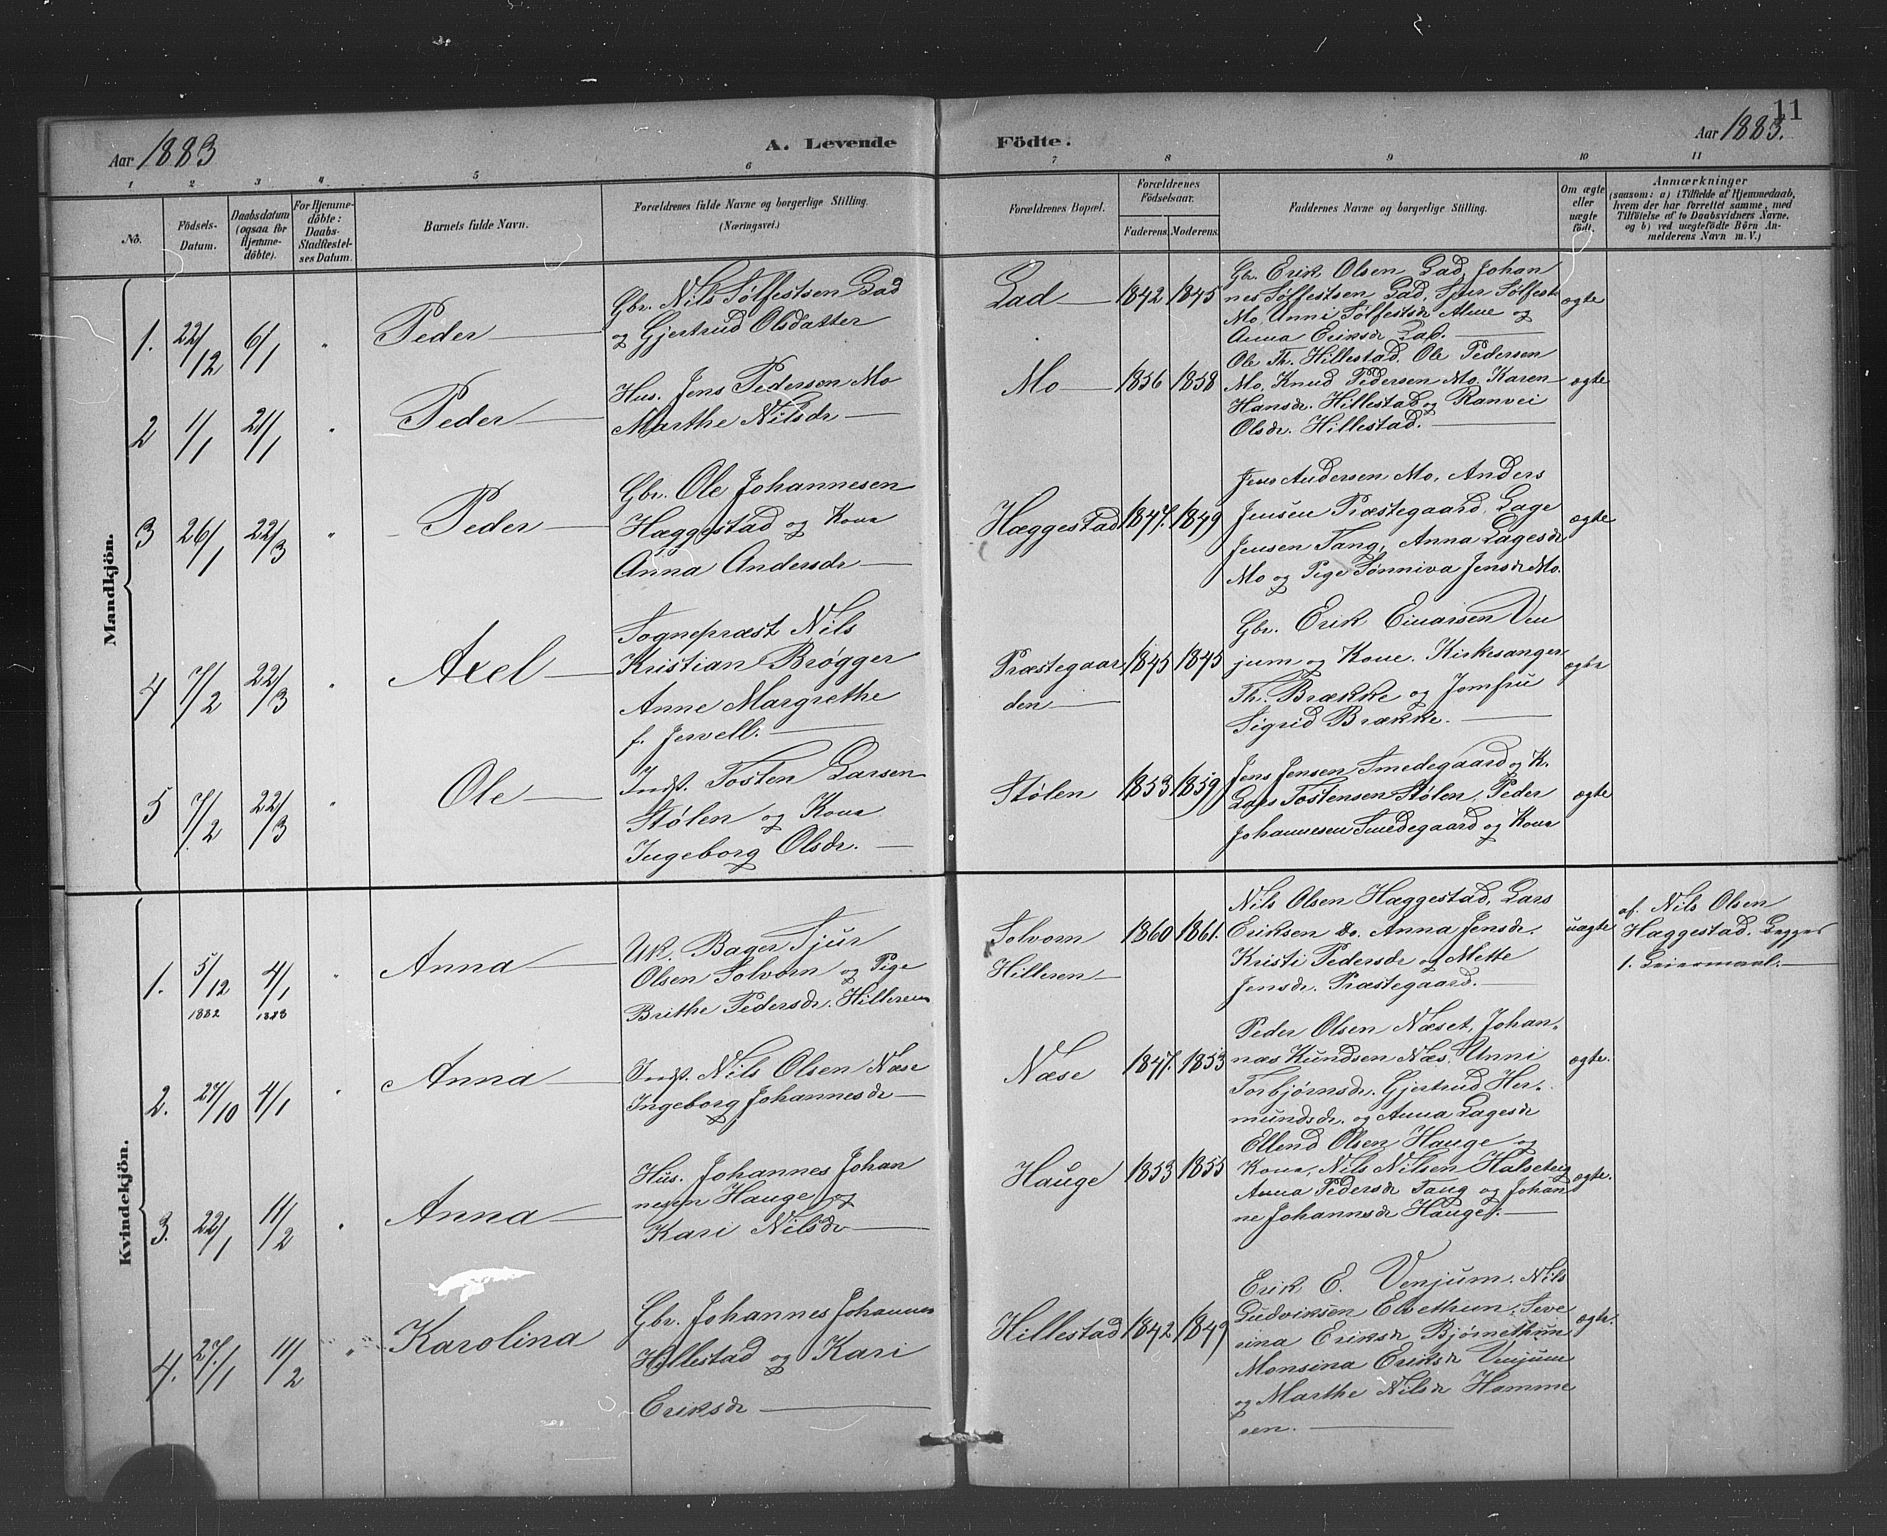 11
Aar 1883
A. Levende
Födte.
Aar 1883.
1 2 3 4 5 6 7 8 9 10 11
No.
Födsels-
Datum.
Daabsdatum
(ogsaa for
Hjemme-
döbte).
For Hjemme-
döbte:
Daabs-
Stadfæstel-
ses Datum.
Barnets fulde Navn.
Forældrenes fulde Navne og borgerlige Stilling.
(Næringsvei.)
Forældrenes Bopæl.
Forældrenes
Födselsaar.
Faderens. Moderens.
Faddernes Navne og borgerlige Stilling.
Om ægte
eller
uægte
födt.
Anmærkninger
(saasom: a) i Tilfælde af Hjemmedaab,
hvem der har forrettet samme, med
Tilföielse af to Daabsvidners Navne,
og b) ved uægtefödte Börn An-
melderens Navn m. V.)
Mandkjön.
1. 22/12 6/1 " Peder
Gbr. Nils Sølfestsen Gad
og Gjertrud Olsdatter
Gad 1842 1845
Gbr. Erik Olsen Gad, Johan
nes Sølfestsen Gad, Sjur Sølfests
Mo, Unni Sølfestsdr Alme og
Anna Eriksdr Gad.
ægte
2 1/1 21/1 " Peder
Hus. Jens Pedersen Mo
Marthe Nilsdr
Mo 1856 1858
Ole Th. Hillestad, Ole Pedersen
Mo, Knud Pedersen Mo, Karen
Hansdr. Hillestad og Ranvei
Olsdr. Hillestad.
ægte
3 26/1 22/3 " Peder
Gbr. Ole Johannesen
Hæggestad og Kone
Anna Andersdr
Hæggestad 1847. 1849
Jens Andersen Mo, Anders
Jensen Præstegaard, Lage
Jensen Tang, Anna Lagesdr
Mo og Pige Sønniva Jensdr Mo.
ægte
4 7/2 22/3 " Axel
Sognepræst Nils
Kristian Brøgger
Anne Margrethe
f. Jervell.
Præstegaar
den
1845 1845
Gbr. Erik Einarsen Ven
jum og Kone. Kirkesanger
Th. Brække og Jomfru
Sigrid Brække.
ægte
5 7/2 22/3 " Ole
Indst. Tosten Larsen
Stølen og Kone
Ingeborg Olsdr.
Stølen 1853 1859
Jens Jensen Smedegaard og K.
Lars Tostensen Stølen, Peder
Johannesen Smedegaard og Kone
ægte
Kvindekjön.
1. 5/12 4/1 " Anna
1882 1883
Uk. Bager Sjur
Olsen Solvorn og Pige
Brithe Pedersdr. Hilleren
Solvorn
Hilleren
1860 1861.
Nils Olsen Hæggestad, Lars
Eriksen Do. Anna Jensdr.
Kristi Pedersdr og Mette
Jensdr. Præstegaard.
uægte
af. Nils Olsen
Hæggestad. Begges
1. Leiermaal.
2. 27/10 4/1 " Anna
Indst. Nils Olsen Næse
Ingeborg Johannesdr
Næse 1847. 1853
Peder Olsen Næset, Johan-
nes Kundsen Næs, Unni
Torbjørnsdr. Gjertrud Her-
mundsdr. og Anna Lagesdr
ægte.
3. 22/1 11/2 " Anna
Hus. Johannes Johan
nesen Hauge og
Kari Nilsdr
Hauge 1853 1855
Ellend Olsen Hauge og
Kone, Nils Nilsen Halseteig
Anna Pedersdr Tang og Johan
ne Johannsdr Hauge.
ægte.
4. 27/1 11/2 " Karolina
Gbr. Johannes Johannes
Hillestad og Kari
Eriksdr
Hillestad 1842 1849
Erik E. Venjum, Nils
Ludviksen Elvethun, Seve
rina Eriksdr Bjørnethun
Monsina Eriksdr Venjum
og Marthe Nilsdr Hamme
ren.
ægte.